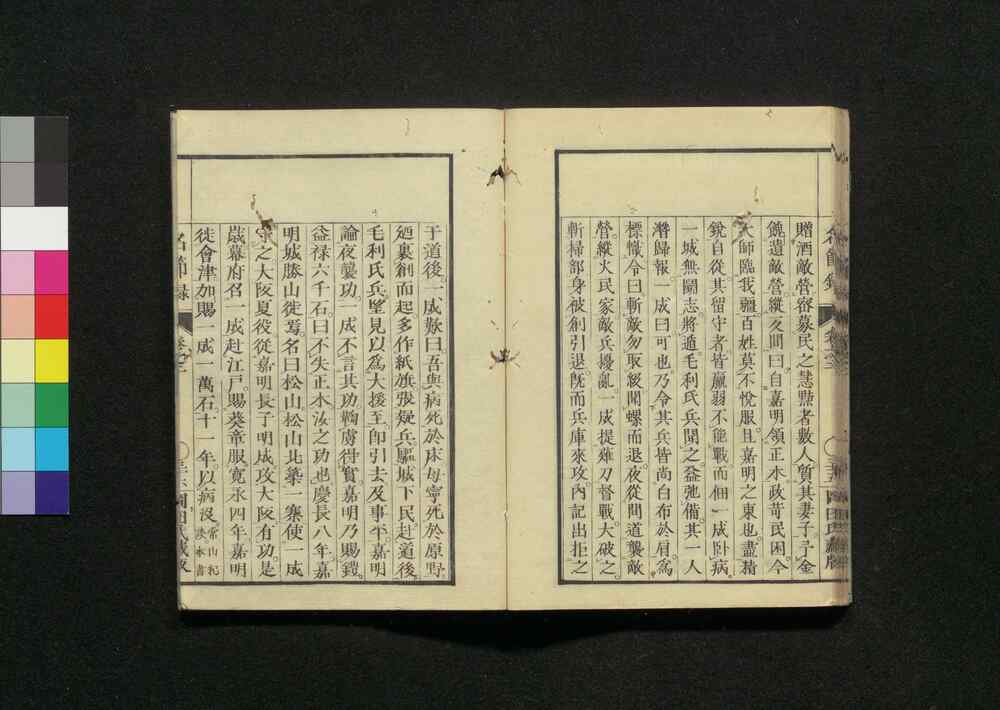 贈酒敵營密募民之慧黠者數人質其妻子予金
饒遺敵營縱反間曰自嘉明領正木政苛民困今
大師臨我疆百姓莫不悅服且嘉明之東也盡精
銳自從其留守者皆羸弱不能戰而佃一成卧病
一城無鬬志將遁毛利氏兵聞之益弛備其一人
潛歸報一成曰可也乃令其兵皆尚白布於肩爲
標幟令曰斬敵勿取級聞螺而退夜從間道襲敵
營縱火民家敵兵擾亂一成提薙刀督戰大破之
斬掃部身被創引退旣而兵庫來攻內記出拒之
于道後一成歎曰吾與病死於床毋寧死於原野
廼裹創而起多作紙旗張疑兵驅城下民赴道後
毛利氏兵望見以爲大援至卽引去及事平嘉明
論夜襲功一成不言其功鞫虜得實嘉明乃賜鎧
益祿六千石曰不失正木汝之功也慶長八年嘉
明城勝山徙焉名曰松山松山北築一寨使一成
守之大阪夏役從嘉明長子明成攻大阪有功是
歲幕府召一成赴江戶賜葵章服寬永四年嘉明
徙會津加賜一成一萬石十一年以病沒 常山紀 淡水書
名節錄
岡田氏藏版
名節錄